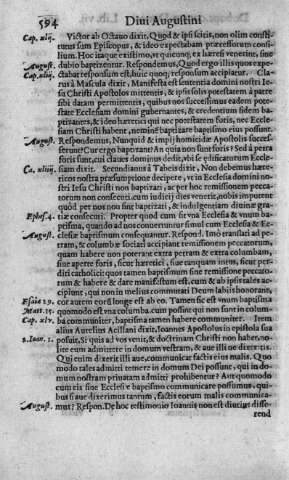 594 Diui Augustini
Cap. xlij. Victor ab Octauo dixit. Quod & ipsi scitis, non olim consti
tutus sum Episcopus, & ideo expectabam præcessorum consi
lium. Hoc itaque existimo, vt quicunq; ex hæresi venerint, sine
August. dubio baptizentur. Respondemus, Quod ergo illis quos expec
Cap. xliij. tabat responsum est, huic quoq; responsum accipiatur. Cla
rus à Mascula dixit, Manifesta est sententia domini nostri Ie
su Christi Apostolos mittentis, & ipsis solis potestatem à patre
sibi datam permittentis, quibus nos successimus eadem pote
state Ecclesiam domini gubernantes, & credentium fidem ba
ptizantes, & ideo hæretici qui nec potestatem foris, nec Eccle
siam Christi habent, neminē baptizare baptismo eius possunt.
August. Respondemus, Nunquid & impij homicidæ Apostolis succes
serunt? Cur ergo baptizant? An quia non sunt foris? Sed à petra
foris sunt, cui claues dominus dedit, vbi se ædificaturum Eccle
Ca. xliiij. siam dixit. Secundianus à Tabeis dixit, Non debemus hære
ticos nostra præsumptione decipere, vt in Ecclesia domini no
stri Iesu Christi non baptizati, ac per hoc remissionem pecca
torum non consecuti, cum iudicij dies venerit, nobis imputent
quòd per nos non sint baptizati, & indulgentiam diuinæ gra
Ephes. 4. tiæ consecuti. Propter quod cum sit vna Ecclesia & vnum ba
ptisma, quando ad nos conuertuntur simul cum Ecclesia & Ec-
August. clesiæ baptismum consequantur. Respond. Imò translati ad pe
tram, & columbæ sociati accipiant remissionem peccatorum,
quam habere non poterant extra petram & extra columbam,
siue apertè foris, sicut hæretici, siue tanquam intus, sicut per-
diti catholici quos tamen baptismum sine remissione peccato-
rum & habere & dare manifestum est, cum & ab ipsis tales ac
cipiunt, qui non in melius commutati Deum labiis honorant,
Esaiæ 29. cor autem eorū longè est ab eo. Tamen sic est vnum baptisma
Matt. 15. quomodo est vna columba, cum possint qui non sunt in colum-
Cap. xlv. ba communiter, baptisma tamen habere communiter. Item
alius Aurelius Acillani dixit, Ioannes Apostolus in epistola sua
2. Ioan. 1. posuit, Si quis ad vos venit, & doctrinam Christi non habet, no-
lite eum admittere in domum vestram, & aue illi ne dixeritis.
Qui enim dixerit illi aue, communicat factis eius malis. Quo
modo tales admitti temerè in domum Dei possunt, qui in do-
mum nostram priuatam admitti prohibentur? Aut quomodo
cum eis sine Ecclesiæ baptismo communicare possumus, qui-
bus si aue dixerimus tantum, factis eorum malis communica-
August. mus? Respon. De hoc testimonio Ioannis non est diutius disse-
rend